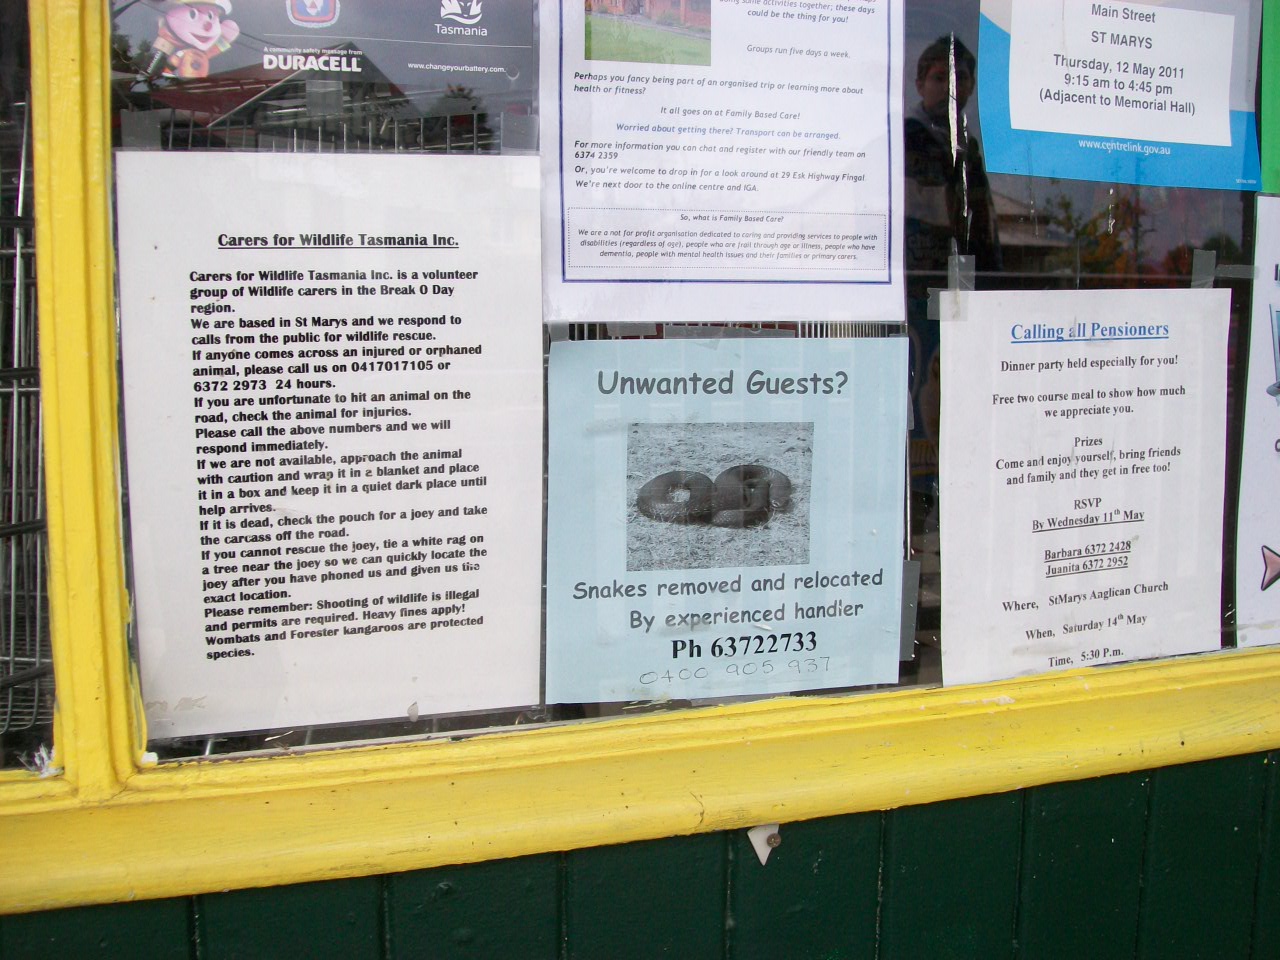 A community safety message from
DURACELL
www.changeyourbattery.com
Tasmania
Carers for Wildlife Tasmania Inc.
Carers for Wildlife Tasmania Inc. is a volunteer
group of Wildlife carers in the Break O Day
region.
We are based in St Marys and we respond to
calls from the public for wildlife rescue.
If anyone comes across an injured or orphaned
animal, please call us on 0417017105 or
6372 2973 24 hours.
If you are unfortunate to hit an animal on the
road, check the animal for injuries.
Please call the above numbers and we will
respond immediately.
If we are not available, approach the animal
with caution and wrap it in a blanket and place
it in a box and keep it in a quiet dark place until
help arrives.
If it is dead, check the pouch for a joey and take
the carcass off the road.
If you cannot rescue the joey, tie a white rag on
a tree near the joey so we can quickly locate the
joey after you have phoned us and given us the
exact location.
Please remember: Shooting of wildlife is illegal
and permits are required. Heavy fines apply!
Wombats and Forester kangaroos are protected
species.
some activities together; these days
could be the thing for you!
Groups run five days a week.
Perhaps you fancy being part of an organised trip or learning more about
health or fitness?
It all goes on at Family Based Care!
Worried about getting there? Transport can be arranged.
For more information you can chat and register with our friendly team on
6374 2359
Or, you're welcome to drop in for a look around at 29 Esk Highway Fingal
We're next door to the online centre and IGA.
So, what is Family Based Care?
We are a not for profit organisation dedicated to caring and providing services to people with
disabilities (regardless of age), people who are frail through age or illness, people who have
dementia, people with mental health issues and their families or primary carers.
Unwanted Guests?
Snakes removed and relocated
By experienced handler
Ph 63722733
0400 905 937
Main Street
ST MARYS
Thursday, 12 May 2011
9:15 am to 4:45 pm
(Adjacent to Memorial Hall)
www.centrelink.gov.au
Calling all Pensioners
Dinner party held especially for you!
Free two course meal to show how much
we appreciate you.
Prizes
Come and enjoy yourself, bring friends
and family and they get in free too!
RSVP
By Wednesday 11th May
Barbara 6372 2428
Juanita 6372 2952
Where, StMarys Anglican Church
When, Saturday 14th May
Time, 5:30 P.m.